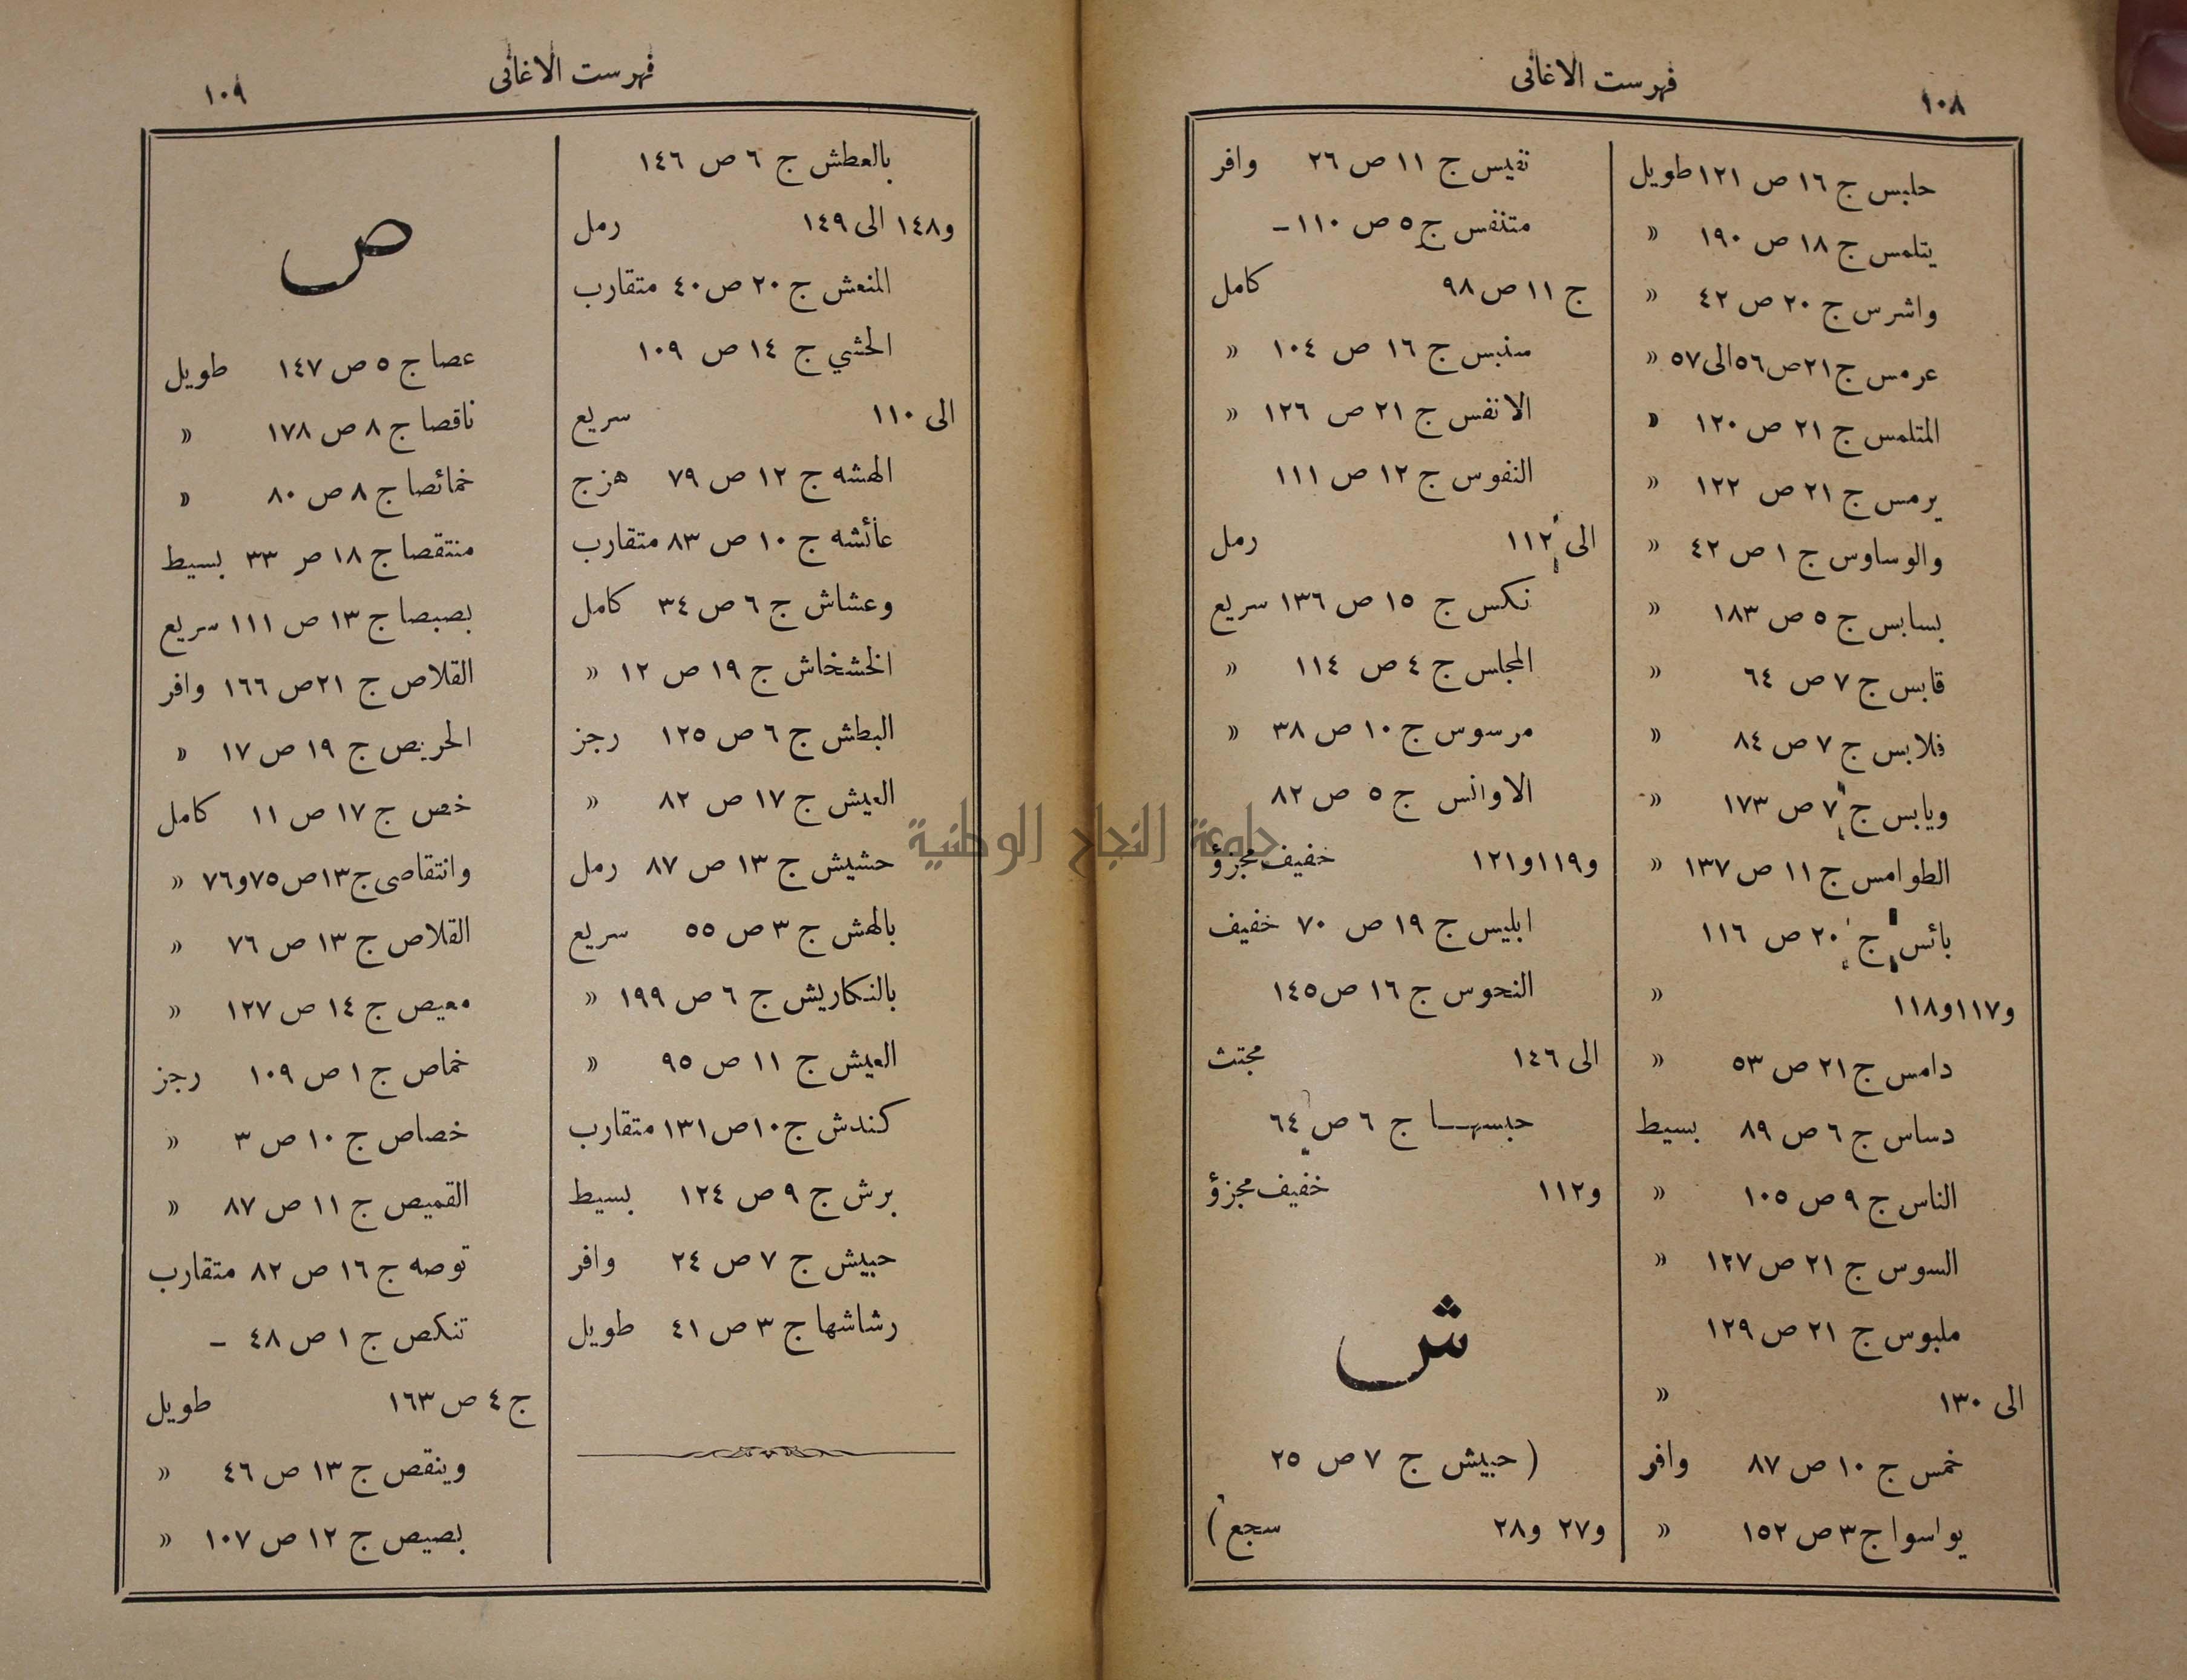 ١٠٨
فهرست الاغانى
حلبس ج ١٦ ص ١٢١ طويل
يتلمس ج ١٨ ص ١٩٠ «
واشرس ج ٢٠ ص ٤٢ «
عرمس ج ٢١ ص ٥٦ الى ٥٧ «
المتلمس ج ٢١ ص ١٢٠ «
يرمس ج ٢١ ص ١٢٢ «
والوساوس ج ١ ص ٤٢ «
بسابس ج ٥ ص ١٨٣ «
قابس ج ٧ ص ٦٤ «
فلابس ج ٧ ص ٨٤ «
ويابس ج ٧ ص ١٧٣ «
الطوامس ج ١١ ص ١٣٧ «
بائس ج ٢٠ ص ١١٦
و١١٧ و١١٨ «
دامس ج ٢١ ص ٥٣ «
دساس ج ٦ ص ٨٩ بسيط
الناس ج ٩ ص ١٠٥ «
السوس ج ٢١ ص ١٢٧ «
ملبوس ج ٢١ ص ١٢٩
الى ١٣٠ «
خمس ج ١٠ ص ٨٧ وافر
يواسوا ج ٣ ص ١٥٢ «
نفيس ج ١١ ص ٢٦ وافر
متنفس ج ٥ ص ١١٠ –
ج ١١ ص ٩٨ كامل
منبس ج ١٦ ص ١٠٤ «
الانفس ج ٢١ ص ١٢٦ «
النفوس ج ١٢ ص ١١١
الى ١١٢ رمل
نكس ج ١٥ ص ١٣٦ سريع
المجلس ج ٤ ص ١١٤ «
مرسوس ج ١٠ ص ٣٨ «
الاوانس ج ٥ ص ٨٢
و١١٩ و١٢١ خفيف مجزؤ
ابليس ج ١٩ ص ٧٠ خفيف
النحوس ج ١٦ ص ١٤٥
الى ١٤٦ مجتث
حبسهـا ج ٦ ص ٦٤
و١١٢ خفيف مجزؤ
ش
(حبيش ج ٧ ص ٢٥
و٢٧ و٢٨ سجع)
فهرست الاغانى
١٠٩
بالعطش ج ٦ ص ١٤٦
و١٤٨ الى ١٤٩ رمل
المنعش ج ٢٠ ص ٤٠ متقارب
الحشي ج ١٤ ص ١٠٩
الى ١١٠ سريع
الهشه ج ١٢ ص ٧٩ هزج
عائشه ج ١٠ ص ٨٣ متقارب
وعشاش ج ٦ ص ٣٤ كامل
الخشخاش ج ١٩ ص ١٢ «
البطش ج ٦ ص ١٢٥ رجز
العيش ج ١٧ ص ٨٢ «
حشيش ج ١٣ ص ٨٧ رمل
بالهش ج ٣ ص ٥٥ سريع
بالنكاريش ج ٦ ص ١٩٩ «
العيش ج ١١ ص ٩٥ «
كندش ج ١٠ ص ١٣١ متقارب
برش ج ٩ ص ١٢٤ بسيط
حبيش ج ٧ ص ٢٤ وافر
رشاشها ج ٣ ص ٤١ طويل
ص
عصا ج ٥ ص ١٤٧ طويل
ناقصا ج ٨ ص ١٧٨ «
خمائصا ج ٨ ص ٨٠ «
منتقصا ج ١٨ ص ٣٣ بسيط
بصبصا ج ١٣ ص ١١١ سريع
القلاص ج ٢١ ص ١٦٦ وافر
الحريص ج ١٩ ص ١٧ «
خص ج ١٧ ص ١١ كامل
وانتقاصى ج ١٣ ص ٧٥ و٧٦ «
القلاص ج ١٣ ص ٧٦ «
معيص ج ١٤ ص ١٢٧ «
خماص ج ١ ص ١٠٩ رجز
خصاص ج ١٠ ص ٣ «
القميص ج ١١ ص ٨٧ «
توصه ج ١٦ ص ٨٢ متقارب
تنكص ج ١ ص ٤٨ –
ج ٤ ص ١٦٣ طويل
وينقص ج ١٣ ص ٤٦ «
بصيص ج ١٢ ص ١٠٧ «
جامعة النجاح الوطنية